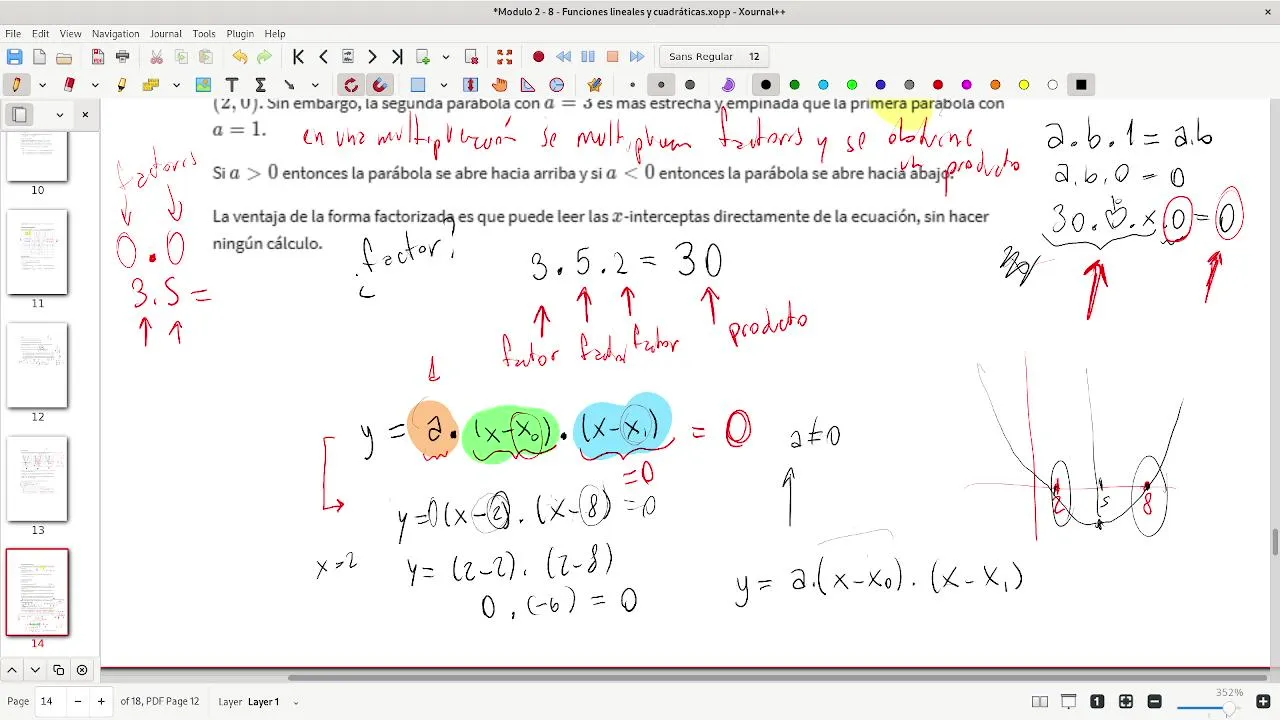 *Modulo 2 - 8 - Funciones lineales y cuadráticas.xopp - Xournal++
File Edit View Navigation Journal Tools Plugin Help
Sans Regular 12
(2, 0). Sin embargo, la segunda parábola con a = 3 es más estrecha y empinada que la primera parábola con
a = 1.
en una multiplicación se multiplican factores y se obtiene
un producto
Si a > 0 entonces la parábola se abre hacia arriba y si a < 0 entonces la parábola se abre hacia abajo.
La ventaja de la forma factorizada es que puede leer las x-interceptas directamente de la ecuación, sin hacer
ningún cálculo.
factores
0 . 0
3.5 =
¿factor?
3 . 5 . 2 = 30
factor factor factor producto
a.b.1 = a.b
a.b.0 = 0
30.♡.x.0 = 0
y = a.(x-x₀).(x-x₁) = 0
=0
a≠0
y=0(x-2).(x-8)=0
x=2
y= (2-2).(2-8)
0 . (-6) = 0
y= a.(x-x₀).(x-x₁)
2 5 8
10
11
12
13
14
Page 14 of 18, PDF Page 12 Layer Layer 1
352%